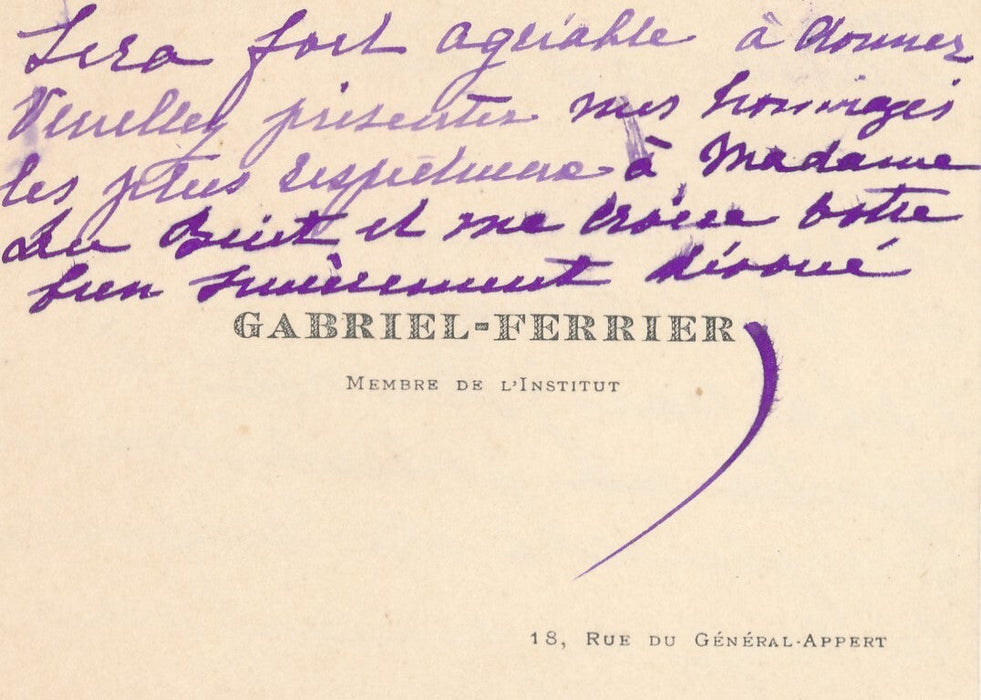 Sera fort agréable à donner
Veuillez présenter mes hommages
les plus respectueux à Madame
et me croire votre
bien sincèrement dévoué
GABRIEL-FERRIER
MEMBRE DE L'INSTITUT
18, RUE DU GÉNÉRAL-APPERT